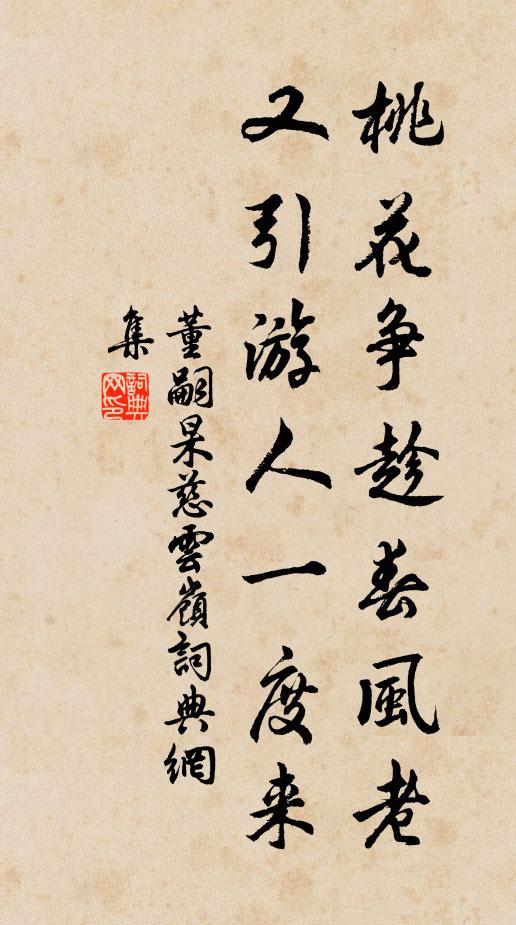 桃花争趁春風老
又引游人一度来
董嗣杲慈雲嶺詞典網
集
詞典
网印